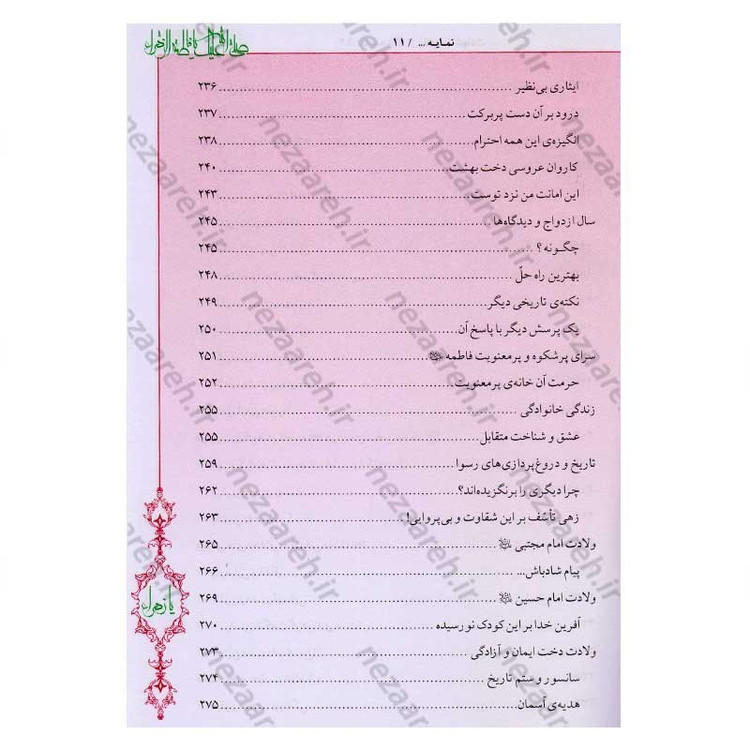 نمایه ... / ۱۱
صلی الله علیک یا فاطمة الزهراء
ایثاری بی‌نظیر ........ ۲۳۶
درود بر آن دست پربرکت ........ ۲۳۷
انگیزه‌ی این همه احترام ........ ۲۳۸
کاروان عروسی دخت بهشت ........ ۲۴۰
این امانت من نزد توست ........ ۲۴۳
سال ازدواج و دیدگاه‌ها ........ ۲۴۵
چگونه؟ ........ ۲۴۵
بهترین راه حلّ ........ ۲۴۸
نکته‌ی تاریخی دیگر ........ ۲۴۹
یک پرسش دیگر با پاسخ آن ........ ۲۵۰
سرای پرشکوه و پرمعنویت فاطمه ........ ۲۵۱
حرمت آن خانه‌ی پرمعنویت ........ ۲۵۲
زندگی خانوادگی ........ ۲۵۵
عشق و شناخت متقابل ........ ۲۵۵
تاریخ و دروغ‌پردازی‌های رسوا ........ ۲۵۹
چرا دیگری را برنگزیده‌اند؟ ........ ۲۶۲
زهی تأسّف بر این شقاوت و بی‌پروایی! ........ ۲۶۳
ولادت امام مجتبی ........ ۲۶۵
پیام شادباش... ........ ۲۶۶
ولادت امام حسین ........ ۲۶۹
آفرین خدا بر این کودک نورسیده ........ ۲۷۰
ولادت دخت ایمان و آزادگی ........ ۲۷۳
سانسور و ستم تاریخ ........ ۲۷۴
هدیه‌ی آسمان ........ ۲۷۵
یا زهراء
nezaareh.ir